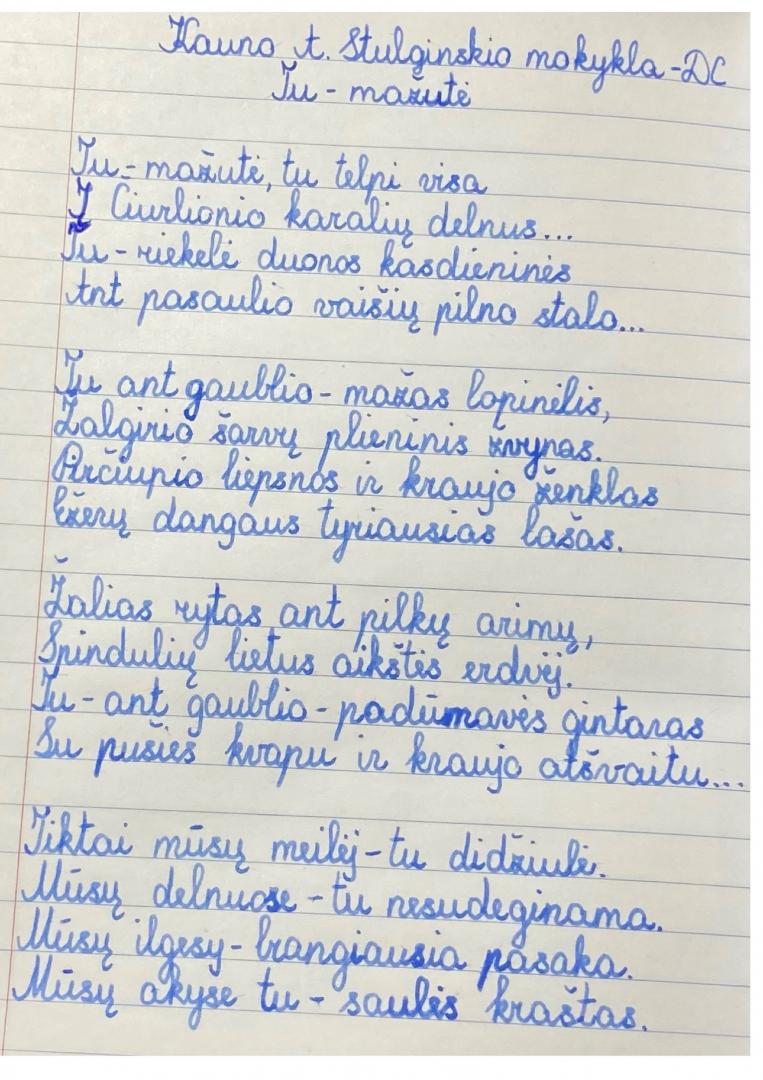 Kauno A. Stulginskio mokykla-DC
Tu - mažutė
Tu - mažutė, tu telpi visa
Į Čiurlionio karalių delnus...
Tu - riekelė duonos kasdieninės
Ant pasaulio vaišių pilno stalo...
Tu ant gaublio - mažas lopinėlis,
Žalgirio šarvų plieninis žvynas.
Pirčiupio liepsnos ir kraujo ženklas
Ežerų dangaus tyriausias lašas.
Žalias rytas ant pilkų arimų,
Spindulių lietus aikštės erdvėj.
Tu - ant gaublio - padūmavęs gintaras
Su pušies kvapu ir kraujo atšvaitu...
Tiktai mūsų meilėj - tu didžiulė.
Mūsų delnuose - tu nesudeginama.
Mūsų ilgesy - brangiausia pasaka.
Mūsų akyse tu - saulės kraštas.